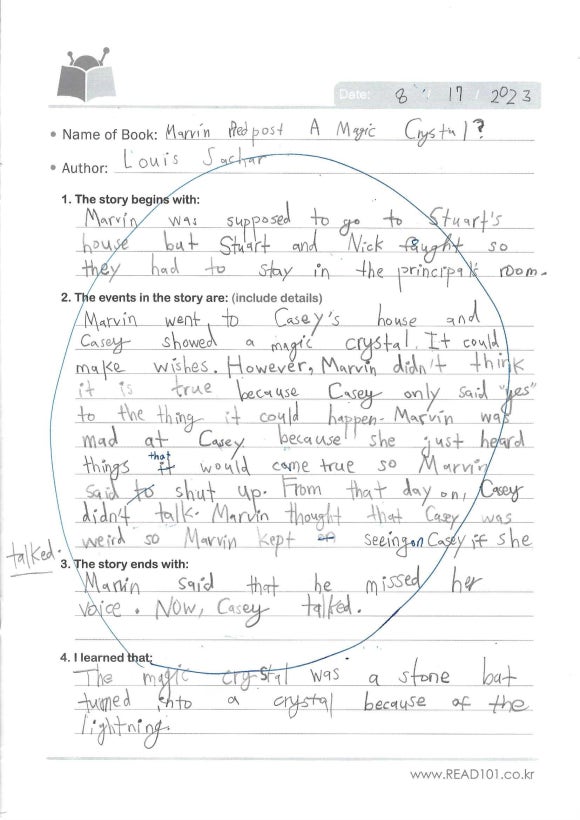 Date: 8 / 17 / 2023
• Name of Book: Marvin Redpost A Magic Crystal?
• Author: Louis Sachar
1. The story begins with:
Marvin was supposed to go to Stuart's
house but Stuart and Nick faught so
they had to stay in the principal's room.
2. The events in the story are: (include details)
Marvin went to Casey's house and
Casey showed a magic crystal. It could
make wishes. However, Marvin didn't think
it is true because Casey only said "yes"
to the thing it could happen. Marvin was
mad at Casey because she just heard
things that it would came true so Marvin
said to shut up. From that day on, Casey
didn't talk. Marvin thought that Casey was
weird so Marvin kept on seeing on Casey if she
talked.
3. The story ends with:
Marvin said that he missed her
voice. Now, Casey talked.
4. I learned that:
The magic crystal was a stone but
turned into a crystal because of the
lightning.
www.READ101.co.kr